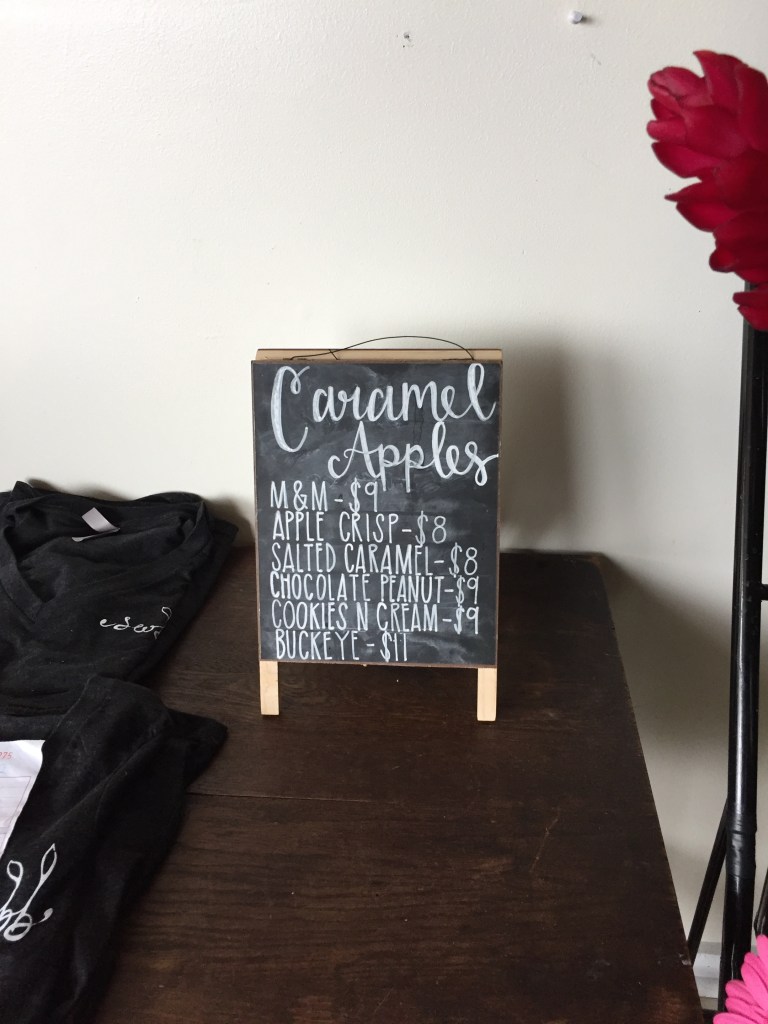 Caramel
Apples
M & M - $9
APPLE CRISP - $8
SALTED CARAMEL - $8
CHOCOLATE PEANUT - $9
COOKIES N CREAM - $9
BUCKEYE - $11